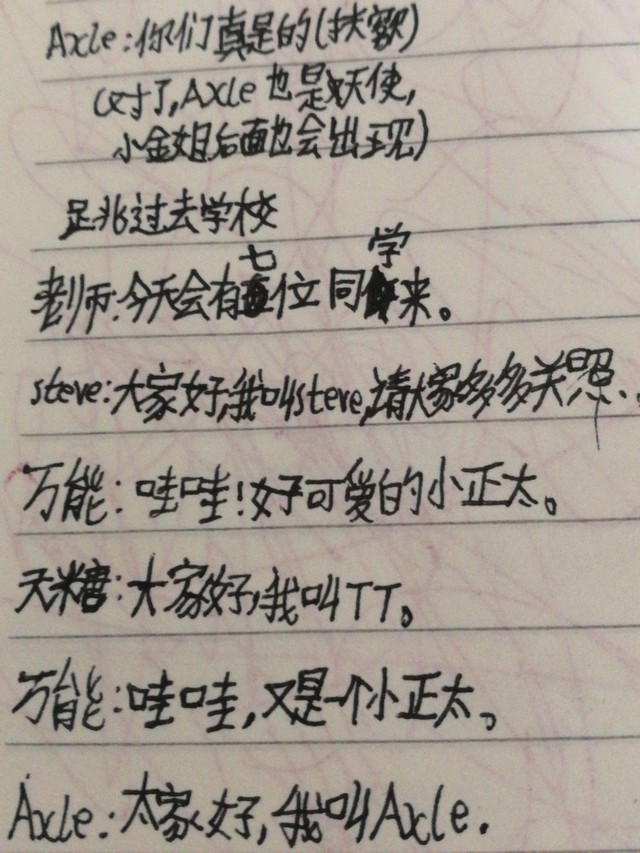 Axle:你们真是的(扶额)
(对了,Axle也是天使,
小金姐后面也会出现)
跳过去学校
老师:今天会有七位同学来。
steve:大家好,我叫steve,请大家多多关照、
万能:哇哇!好可爱的小正太。
天糖:大家好,我叫TT。
万能:哇哇,又是一个小正太。
Axle:大家好,我叫Axle.